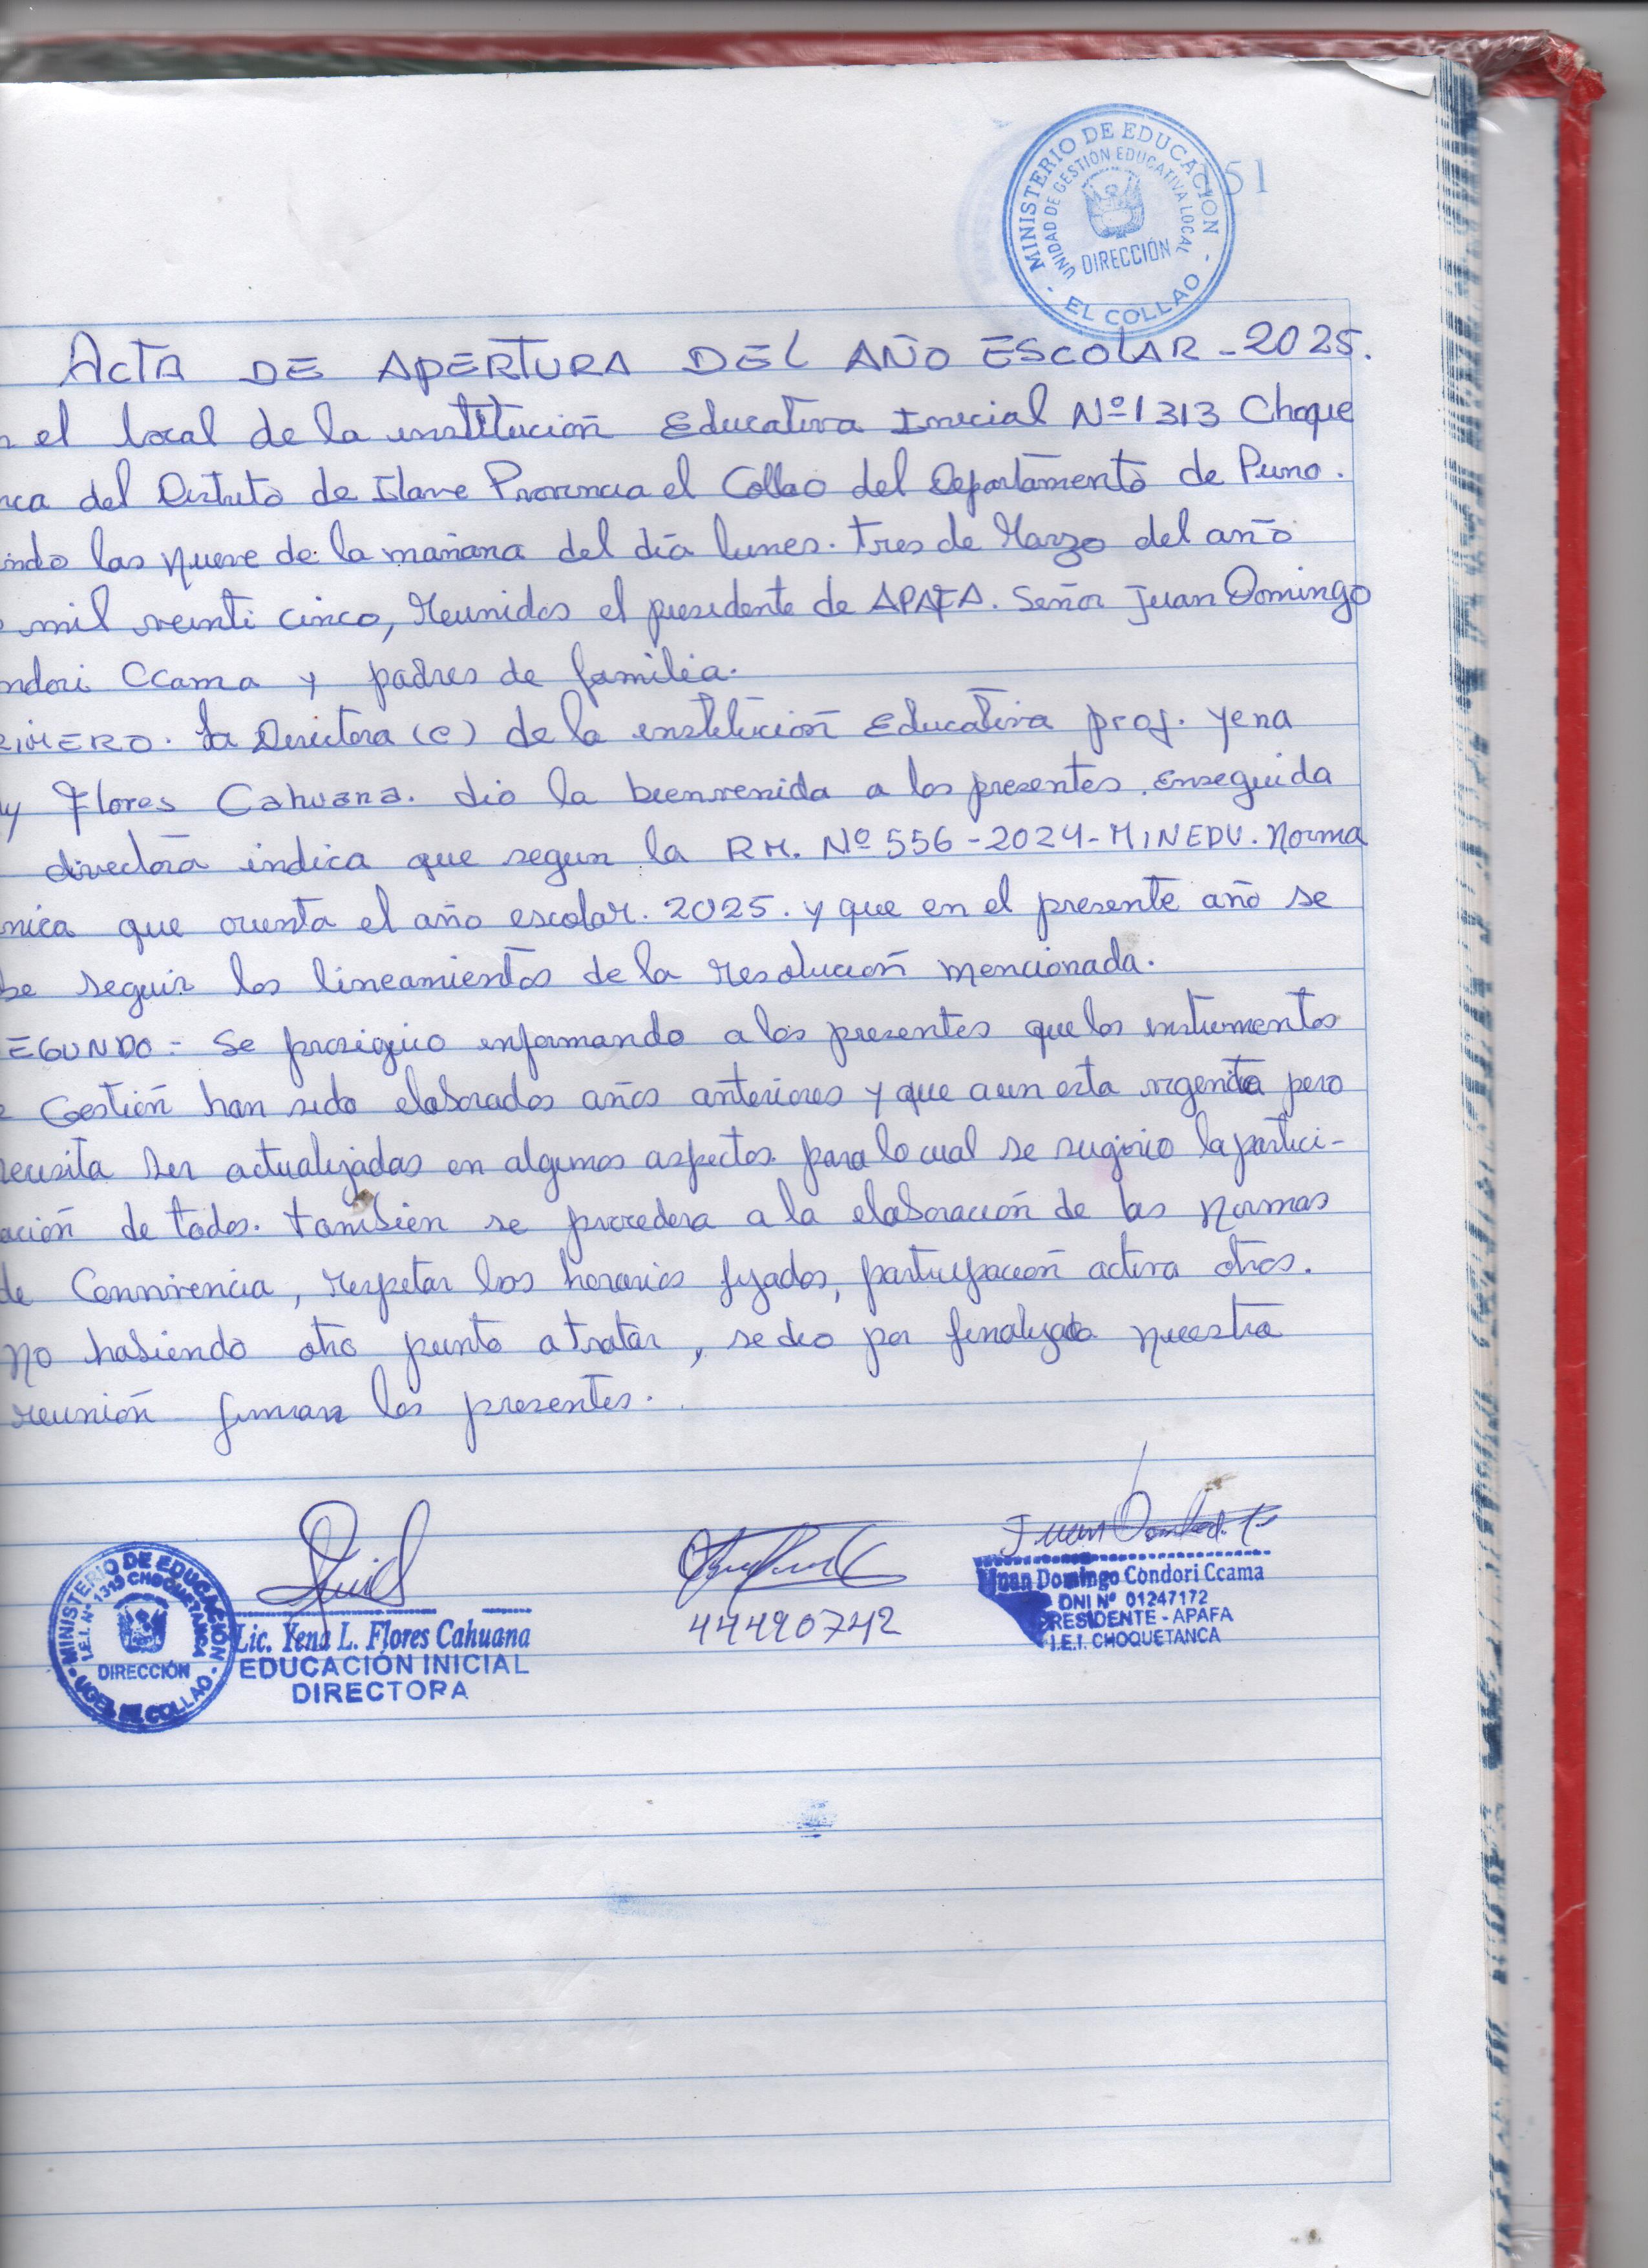 MINISTERIO DE EDUCACIÓN
UNIDAD DE GESTIÓN EDUCATIVA LOCAL
DIRECCIÓN
- EL COLLAO -
51
ACTA DE APERTURA DEL AÑO ESCOLAR - 2025.
n el local de la institución Educativa Inicial Nº 1313 Choque
nca del Distrito de Ilave Provincia el Collao del Departamento de Puno.
endo las nueve de la mañana del día lunes. tres de Marzo del año
mil veinti cinco, Reunidos el presidente de APAFA. Señor Juan Domingo
ndori Ccama y padres de familia.
RIMERO. La Directora (e) de la institución Educativa prof. yena
y Flores Cahuana. dio la bienvenida a los presentes. Enseguida
directora indica que segun la RM. Nº 556-2024-MINEDU. Norma
nica que orienta el año escolar. 2025. y que en el presente año se
be seguir los lineamientos de la resolución mencionada.
EGUNDO = Se prosiguio informando a los presentes que los instrumentos
e Gestión han sido elaborados años anteriores y que aun esta vigente pero
necesita ser actualizadas en algunos aspectos para lo cual se sugirio la partici-
ación de todos. tambien se procedera a la elaboración de las normas
de Convivencia, respetar los horarios fijados, participación activa otros.
No habiendo otro punto a tratar, se dio por finalizado nuestra
reunión firman los presentes.
MINISTERIO DE EDUCACIÓN
I.E.I. Nº 1313 CHOQUETANCA
DIRECCIÓN
UGEL EL COLLAO
Lic. Yena L. Flores Cahuana
EDUCACIÓN INICIAL
DIRECTORA
44490742
Juan Domingo Condori Ccama
DNI Nº 01247172
PRESIDENTE - APAFA
I.E.I. CHOQUETANCA